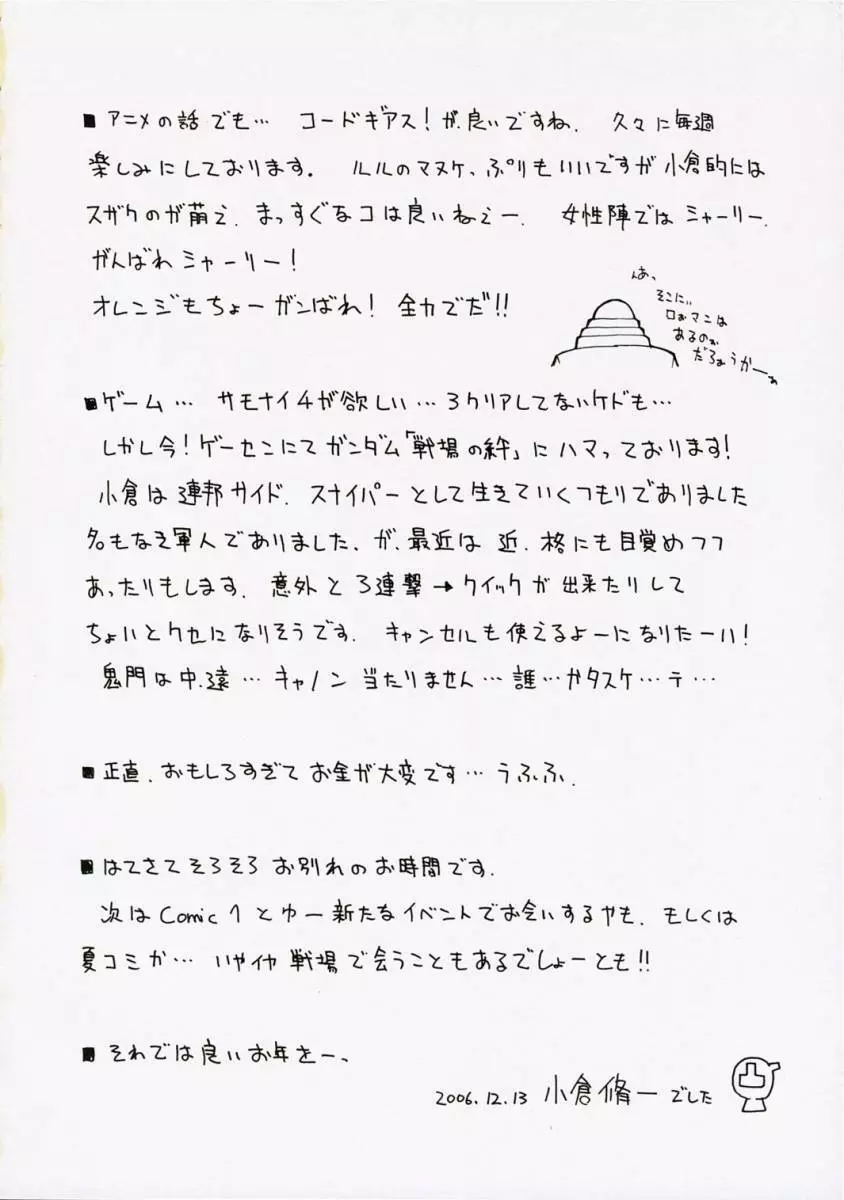 ■アニメの話でも… コードギアス！が、良いですね. 久々に毎週
楽しみにしております. ルルのマヌケ、ぷりもいいですが小倉的には
スザクのが萌え. まっすぐなコは良いねぇー. 女性陣ではシャーリー.
がんばれシャーリー！
オレンジもちょーガンばれ！ 全力でだ!!
んあ、
そこにぃ
ロぉマンは
あるのぉ
だろぉうかーぁ
■ゲーム… サモナイ4が欲しい…3クリアしてないケドも…
しかし今！ゲーセンにてガンダム「戦場の絆」にハマっております！
小倉は連邦サイド. スナイパーとして生きていくつもりでありました
名もなき軍人でありました. が、最近は 近、格にも目覚めつつ
あったりもします. 意外と3連撃→クイックが出来たりして
ちょいとクセになりそうです. キャンセルも使えるよーになりたーい！
鬼門は中、遠…キャノン当たりません…誰…かタスケ…テ…
■正直、おもしろすぎてお金が大変です…うふふ.
■はてさてそろそろお別れのお時間です.
次はComic1とゆー新たなイベントでお会いするやも. もしくは
夏コミか… いやイヤ戦場で会うこともあるでしょーとも!!
■それでは良いお年をー、
2006.12.13 小倉脩一でした